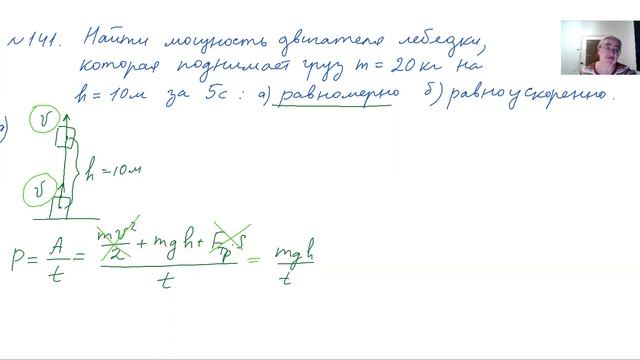 №141. Найти мощность двигателя лебедки,
которая поднимает груз m = 20 кг на
h = 10м за 5с : а) равномерно б) равноускоренно.
а)
v
h = 10м
v
P = A/t = (mv²/2 + mgh + Fтр·S)/t = mgh/t